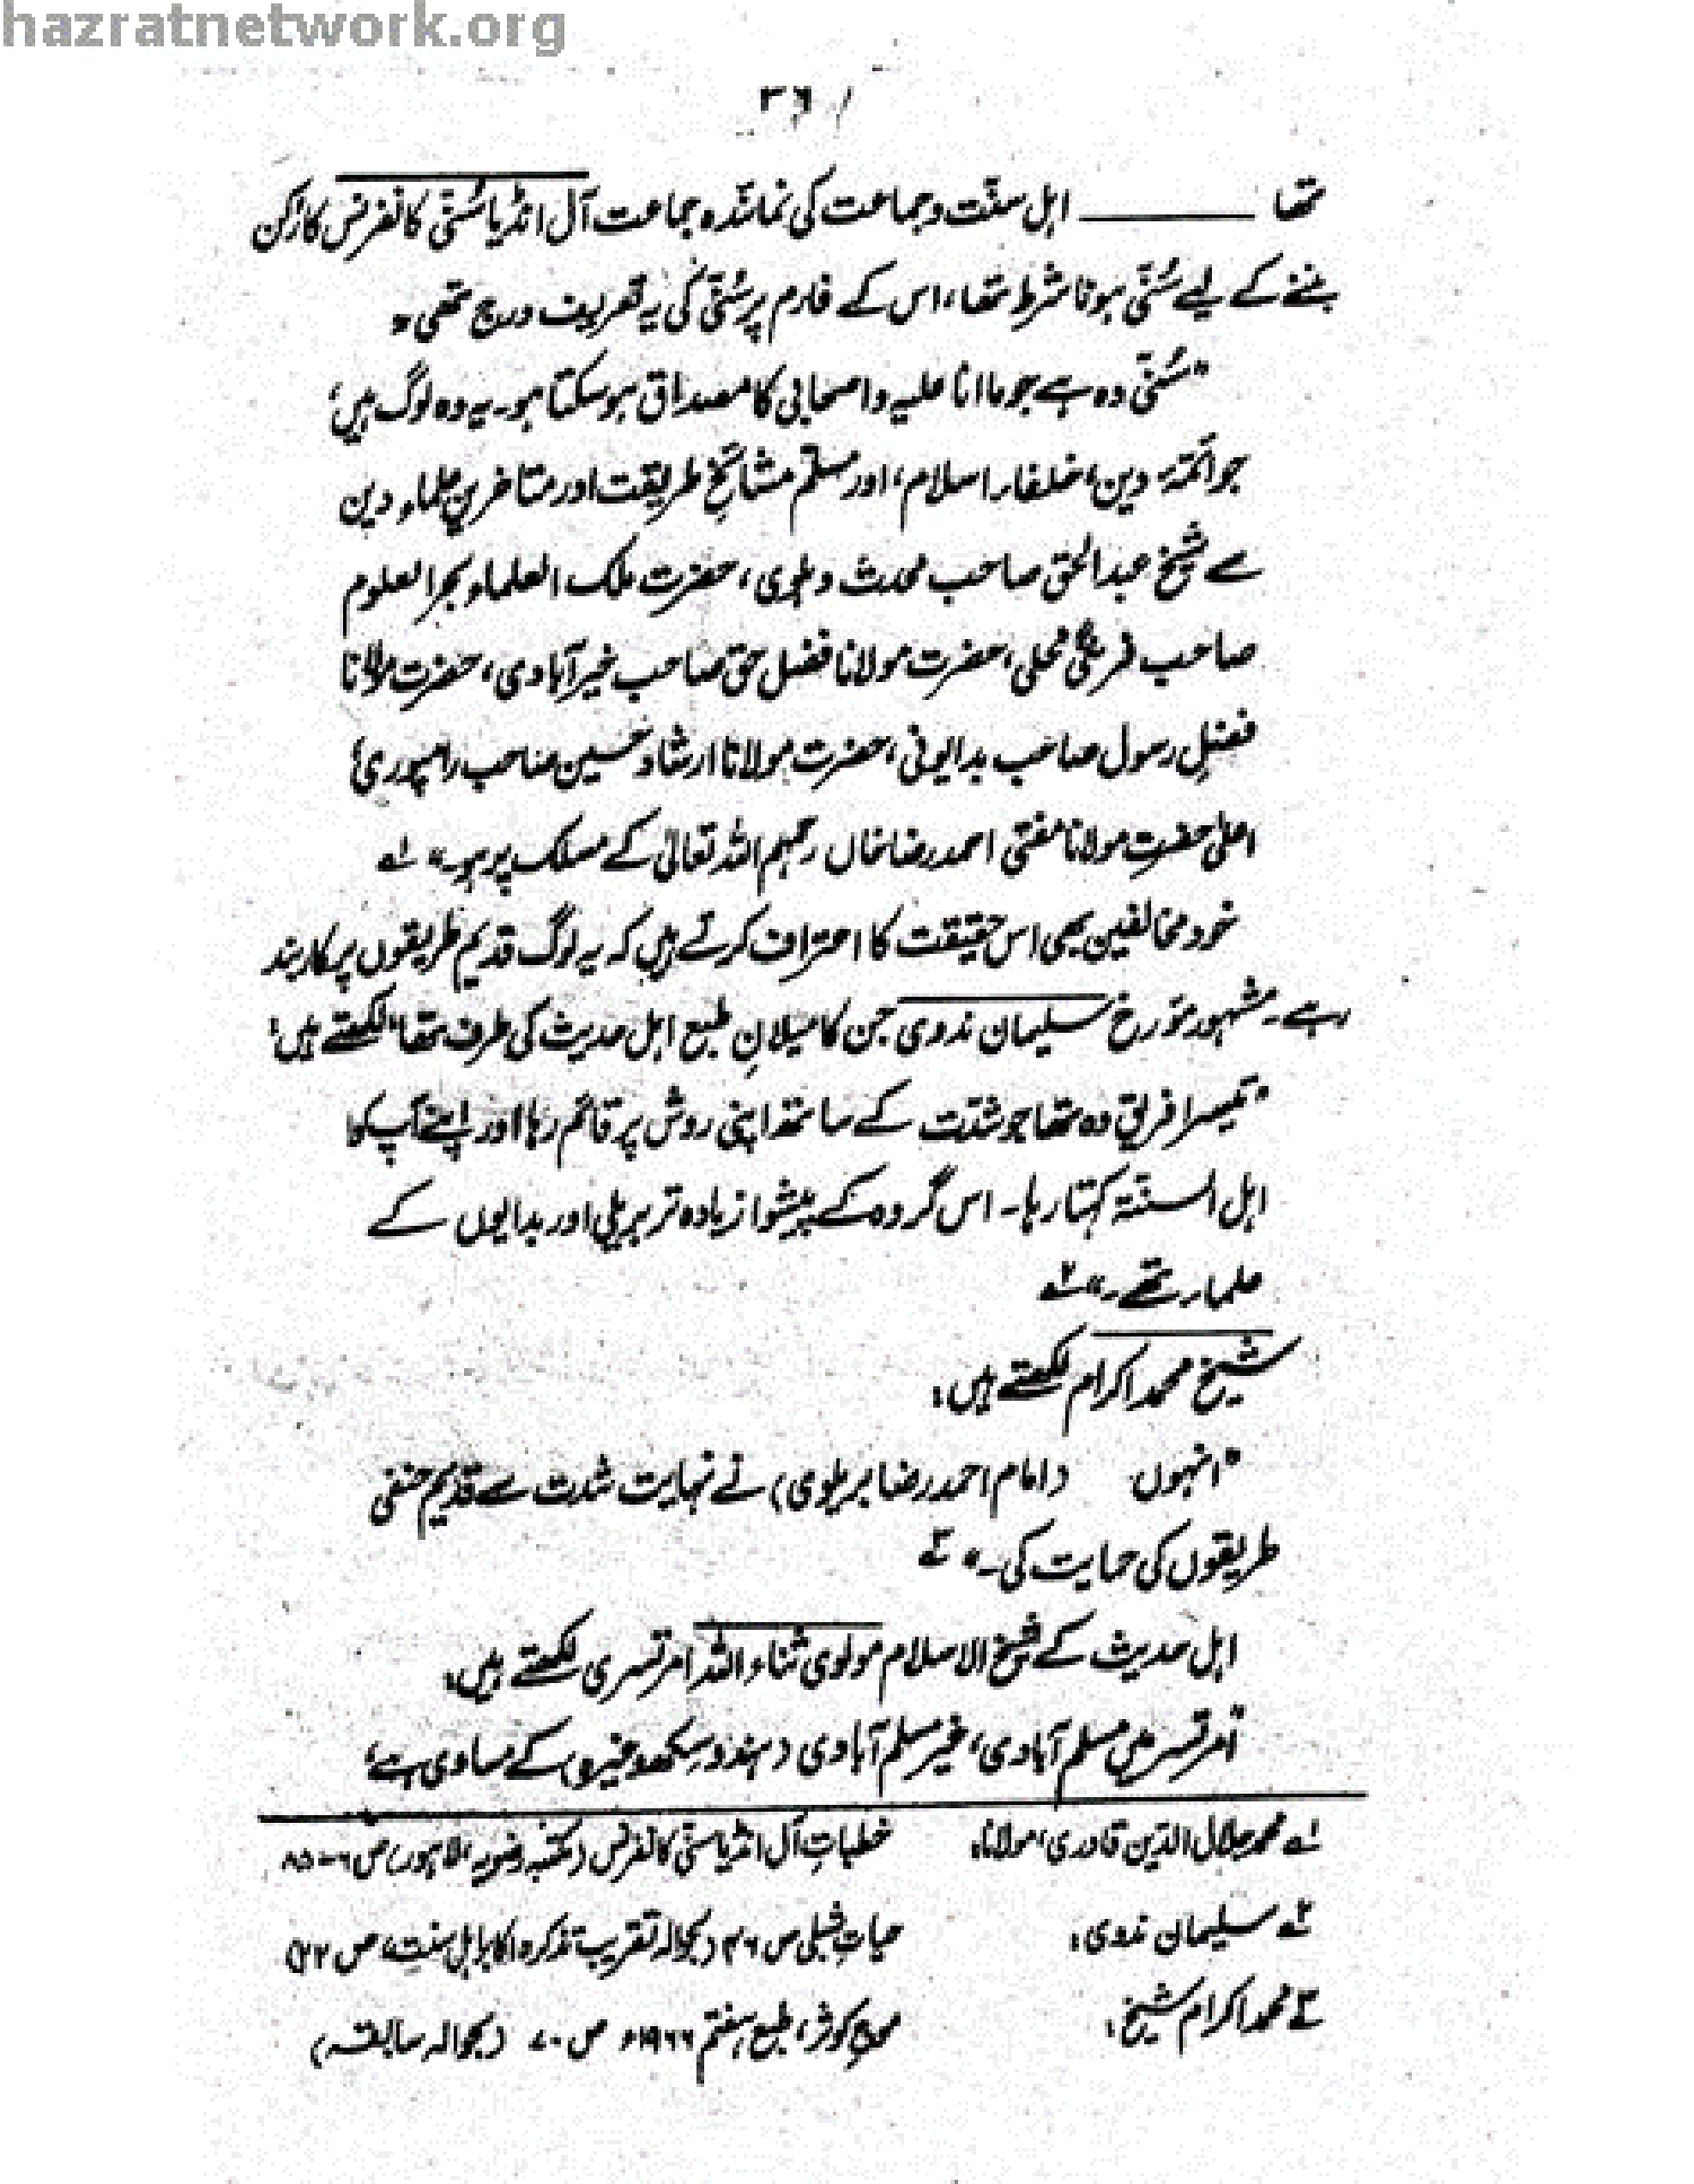 hazratnetwork.org
۳۶
تھا ــــــــ اہل سنّت وجماعت کی نمائندہ جماعت آل انڈیا سُنّی کانفرنس کا رُکن
بننے کے لیے سُنّی ہونا شرط تھا، اس کے فارم پر سُنّی کی یہ تعریف درج تھی:
"سُنّی وہ ہے جو ما انا علیہ واصحابی کا مصداق ہو سکتا ہو۔ یہ وہ لوگ ہیں،
جو ائمّۂ دین، خلفار اسلام، اور مسلّم مشائخِ طریقت اور متاخرین علماء دین
سے شیخ عبدالحق صاحب محدث دہلوی، حضرت ملک العلماء بحر العلوم
صاحب فرنگی محلی، حضرت مولانا فضل حق صاحب خیرآبادی، حضرت مولانا
فضلِ رسول صاحب بدایونی، حضرت مولانا ارشاد حسین صاحب رامپوری،
اعلیٰ حضرت مولانا مفتی احمد رضا خاں رحمہم اللہ تعالیٰ کے مسلک پر ہو۔" لہ
خود مخالفین بھی اس حقیقت کا اعتراف کرتے ہیں کہ یہ لوگ قدیم طریقوں پر کاربند
رہے۔ مشہور مؤرخ سلیمان ندوی جن کا میلانِ طبع اہل حدیث کی طرف تھا، لکھتے ہیں:
"تیسرا فریق وہ تھا جو شدّت کے ساتھ اپنی روش پر قائم رہا اور اپنے آپ کو
اہل السنّۃ کہتا رہا۔ اس گروہ کے پیشوا زیادہ تر بریلی اور بدایوں کے
علمار تھے۔" ۲ہ
شیخ محمد اکرام لکھتے ہیں:
"انہوں (امام احمد رضا بریلوی) نے نہایت شدت سے قدیم حنفی
طریقوں کی حمایت کی۔" ۳ہ
اہل حدیث کے شیخ الاسلام مولوی ثناء اللہ امرتسری لکھتے ہیں:
"امرتسر میں مسلم آبادی، غیر مسلم آبادی (ہندو سِکھ وغیرہ) کے مساوی ہے،
لہ محمد جلال الدّین قادری، مولانا: خطباتِ آل انڈیا سنّی کانفرنس (مکتبہ رضویہ، لاہور) ص ۶-۸۵
۲ہ سلیمان ندوی: حیاتِ شبلی ص ۴۶ (بحوالہ تقریب تذکرہ اکابر اہل سنت، ص ۲۲)
۳ہ محمد اکرام شیخ: موجِ کوثر، طبع ہفتم ۱۹۶۶ء ص ۷۰ (بحوالہ سابقہ)